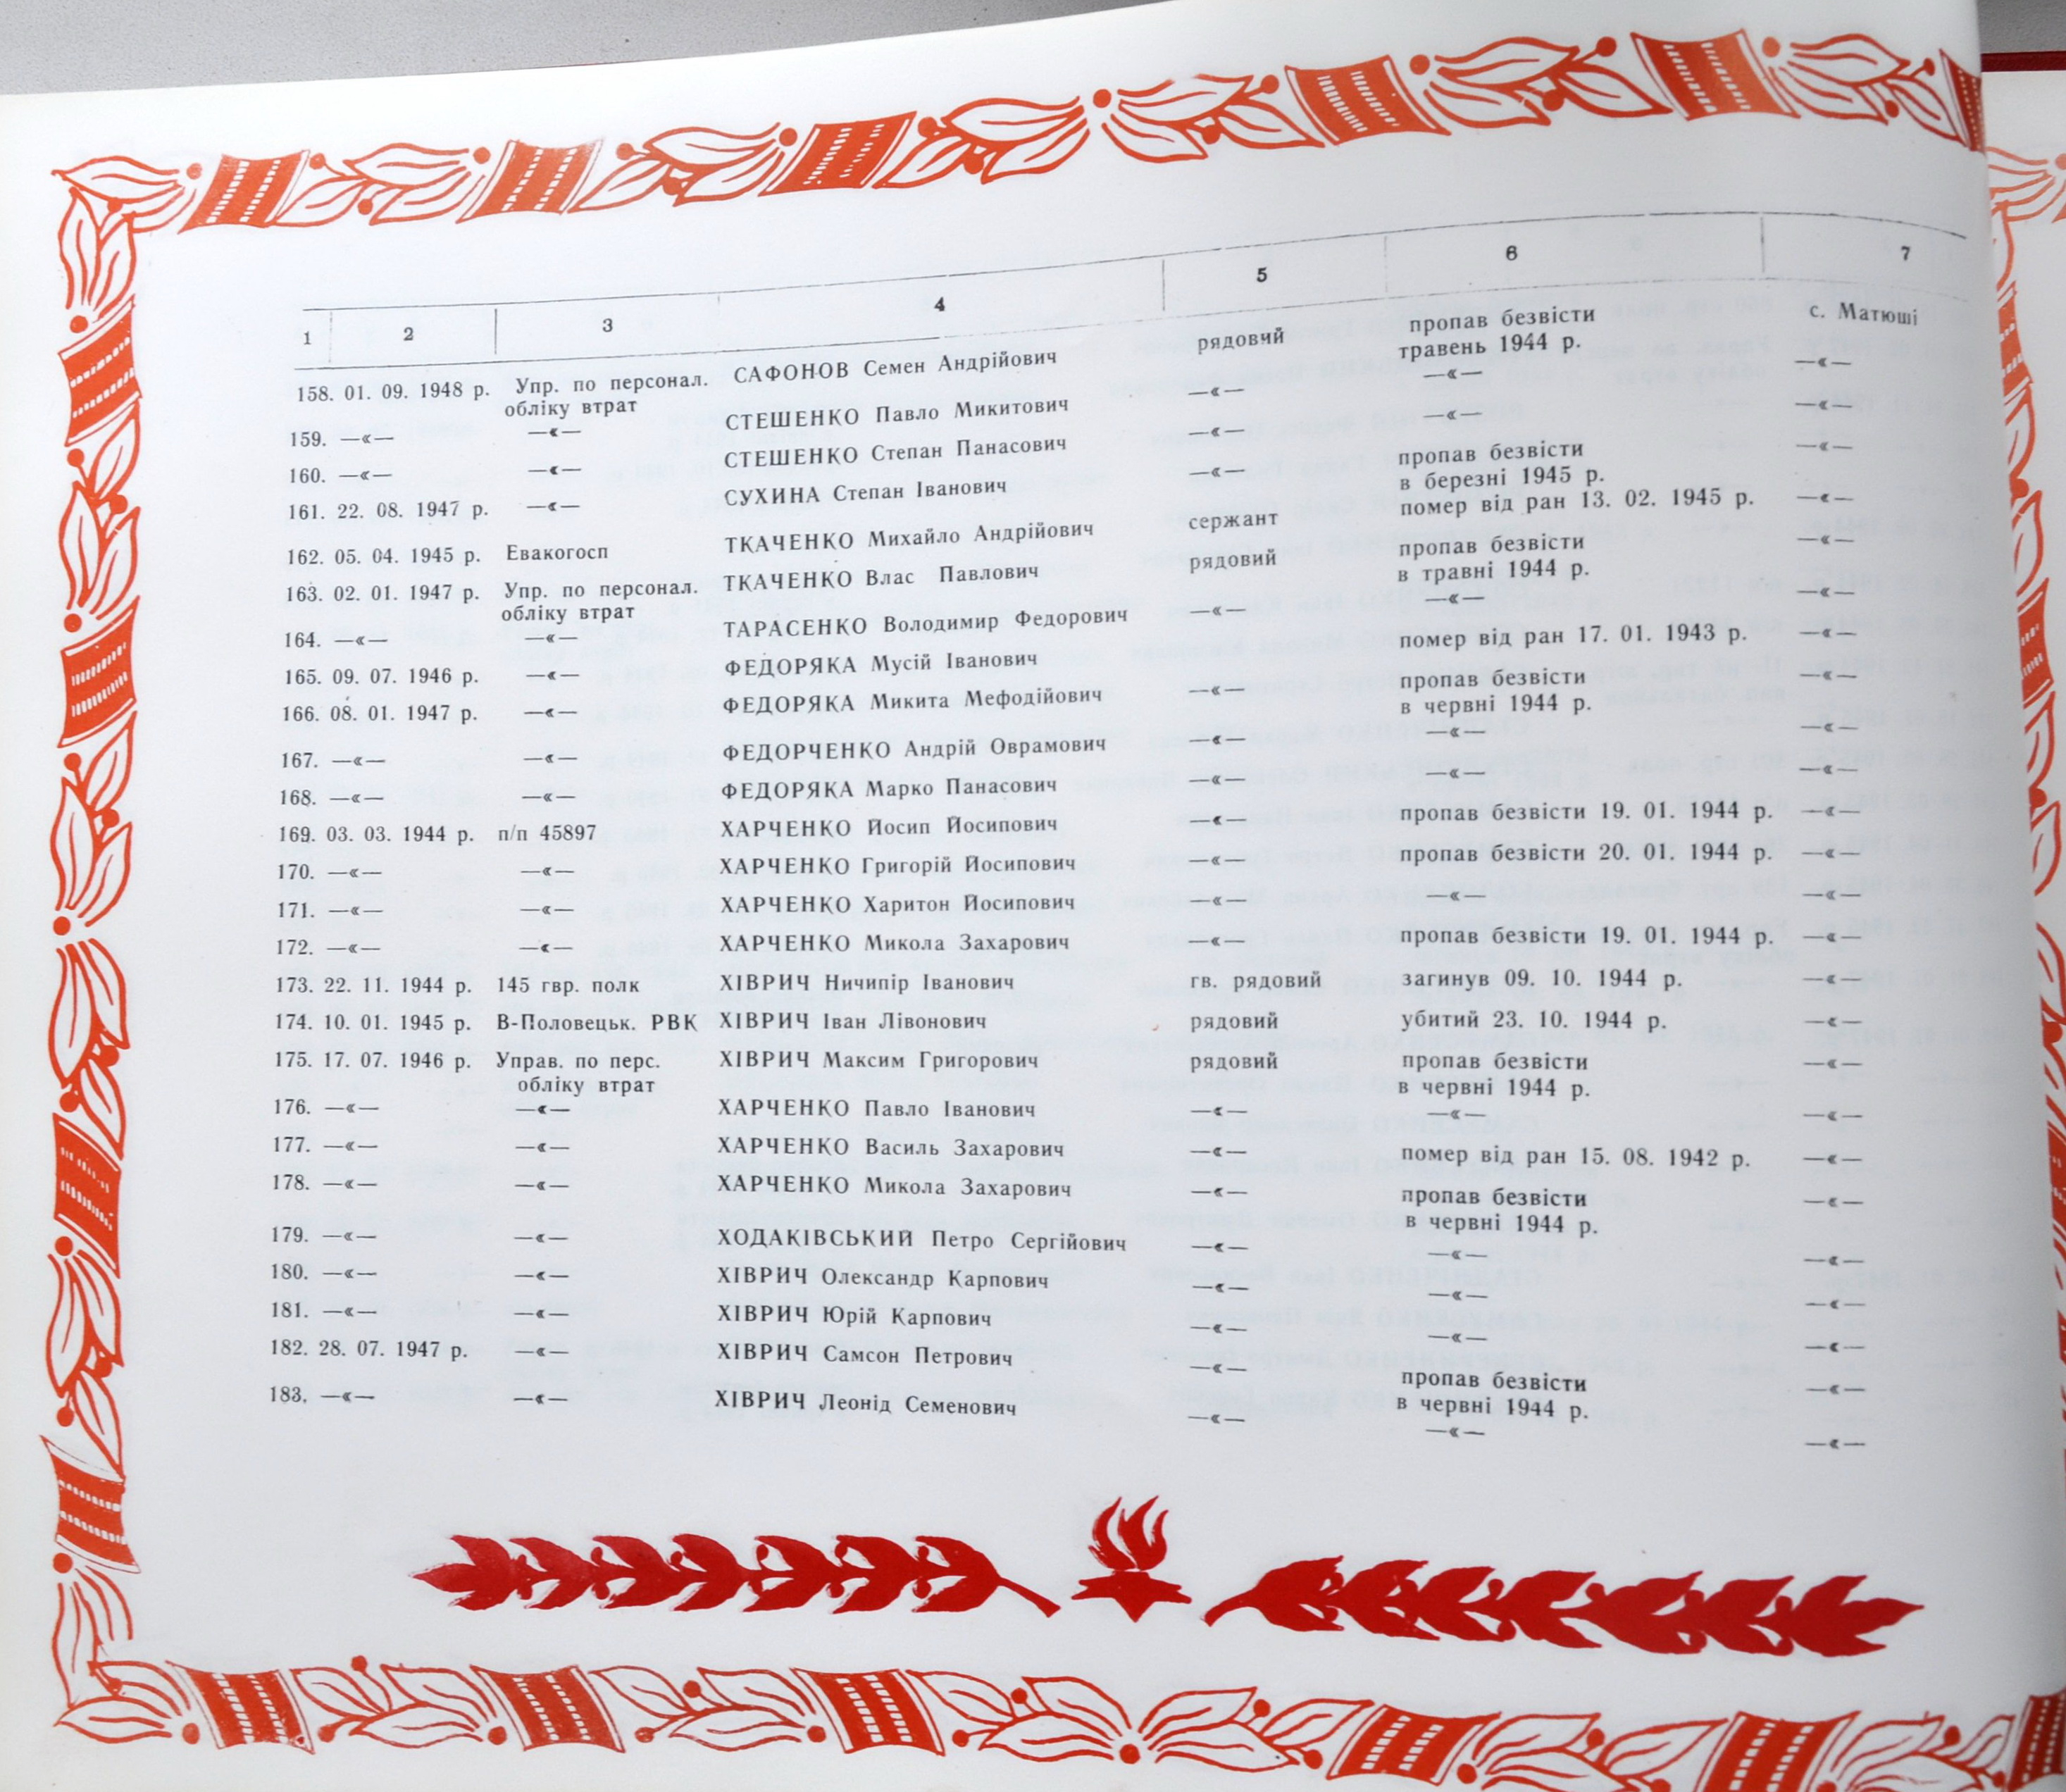 1 2 3 4 5 6 7
158. 01. 09. 1948 р. Упр. по персонал. САФОНОВ Семен Андрійович рядовий пропав безвісти с. Матюші
обліку втрат травень 1944 р.
159. —«— —«— СТЕШЕНКО Павло Микитович —«— —«— —«—
160. —«— —«— СТЕШЕНКО Степан Панасович —«— —«— —«—
161. 22. 08. 1947 р. —«— СУХИНА Степан Іванович —«— пропав безвісти —«—
в березні 1945 р.
162. 05. 04. 1945 р. Евакогосп ТКАЧЕНКО Михайло Андрійович сержант помер від ран 13. 02. 1945 р. —«—
163. 02. 01. 1947 р. Упр. по персонал. ТКАЧЕНКО Влас Павлович рядовий пропав безвісти —«—
обліку втрат в травні 1944 р.
164. —«— —«— ТАРАСЕНКО Володимир Федорович —«— —«— —«—
165. 09. 07. 1946 р. —«— ФЕДОРЯКА Мусій Іванович помер від ран 17. 01. 1943 р. —«—
166. 08. 01. 1947 р. —«— ФЕДОРЯКА Микита Мефодійович —«— пропав безвісти —«—
в червні 1944 р.
167. —«— —«— ФЕДОРЧЕНКО Андрій Оврамович —«— —«— —«—
168. —«— —«— ФЕДОРЯКА Марко Панасович —«— —«— —«—
169. 03. 03. 1944 р. п/п 45897 ХАРЧЕНКО Йосип Йосипович —«— пропав безвісти 19. 01. 1944 р. —«—
170. —«— —«— ХАРЧЕНКО Григорій Йосипович —«— пропав безвісти 20. 01. 1944 р. —«—
171. —«— —«— ХАРЧЕНКО Харитон Йосипович —«— —«— —«—
172. —«— —«— ХАРЧЕНКО Микола Захарович —«— пропав безвісти 19. 01. 1944 р. —«—
173. 22. 11. 1944 р. 145 гвр. полк ХІВРИЧ Ничипір Іванович гв. рядовий загинув 09. 10. 1944 р. —«—
174. 10. 01. 1945 р. В-Половецьк. РВК ХІВРИЧ Іван Лівонович рядовий убитий 23. 10. 1944 р. —«—
175. 17. 07. 1946 р. Управ. по перс. ХІВРИЧ Максим Григорович рядовий пропав безвісти —«—
обліку втрат в червні 1944 р.
176. —«— —«— ХАРЧЕНКО Павло Іванович —«— —«— —«—
177. —«— —«— ХАРЧЕНКО Василь Захарович —«— помер від ран 15. 08. 1942 р. —«—
178. —«— —«— ХАРЧЕНКО Микола Захарович —«— пропав безвісти —«—
в червні 1944 р.
179. —«— —«— ХОДАКІВСЬКИЙ Петро Сергійович —«— —«— —«—
180. —«— —«— ХІВРИЧ Олександр Карпович —«— —«— —«—
181. —«— —«— ХІВРИЧ Юрій Карпович —«— —«— —«—
182. 28. 07. 1947 р. —«— ХІВРИЧ Самсон Петрович —«— пропав безвісти —«—
в червні 1944 р.
183. —«— —«— ХІВРИЧ Леонід Семенович —«— —«— —«—